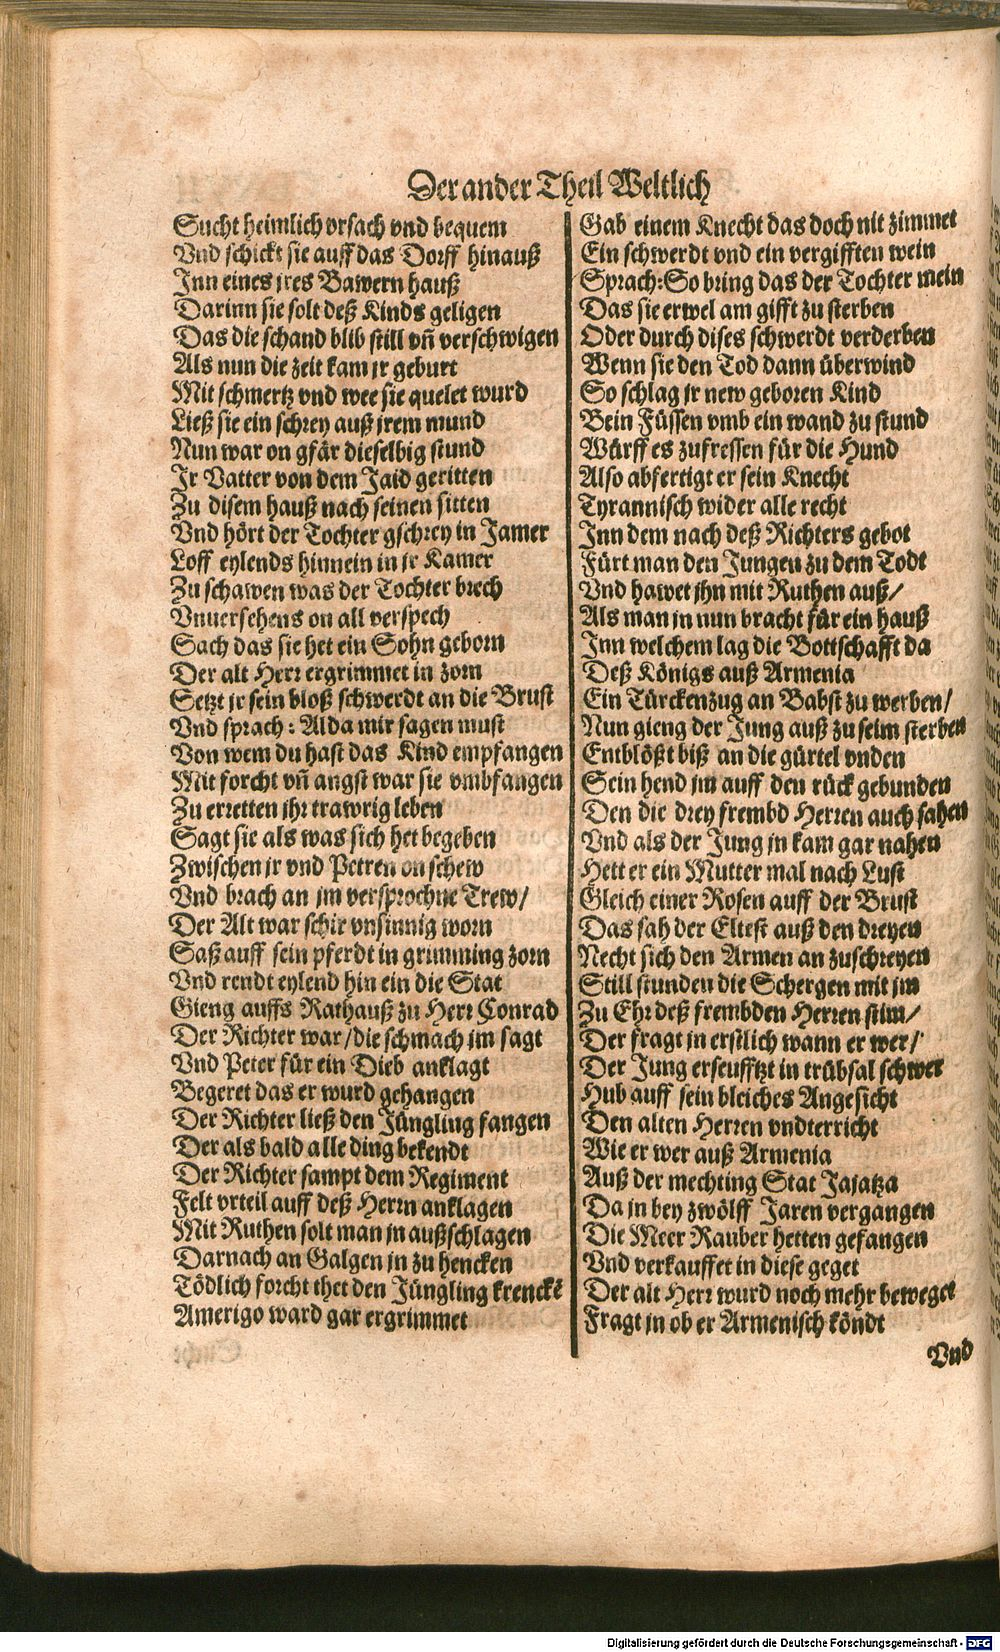 Der ander Theil Weltlich
Sucht heimlich vrsach vnd bequem
Vnd schickt sie auff das Dorff hinauß
Inn eines jres Bawern hauß
Darinn sie solt deß Kinds geligen
Das die schand blib still vñ verschwigen
Als nun die zeit kam jr geburt
Mit schmertz vnd wee sie quelet wurd
Ließ sie ein schrey auß jrem mund
Nun war on gfär dieselbig stund
Ir Vatter von dem Jaid geritten
Zu disem hauß nach seinen sitten
Vnd hört der Tochter gschrey in Jamer
Loff eylends hinnein in jr Kamer
Zu schawen was der Tochter brech
Vnuersehens on all verspech
Sach das sie het ein Sohn geborn
Der alt Herr ergrimmet in zorn
Setzt jr sein bloß schwerdt an die Brust
Vnd sprach: Alda mir sagen must
Von wem du hast das Kind empfangen
Mit forcht vñ angst war sie vmbfangen
Zu erretten ihr trawrig leben
Sagt sie als was sich het begeben
Zwischen jr vnd Petren on schew
Vnd brach an jm versprochne Trew/
Der Alt war schir vnsinnig worn
Saß auff sein pferdt in grimming zorn
Vnd rendt eylend hin ein die Stat
Gieng auffs Rathauß zu Herr Conrad
Der Richter war/die schmach jm sagt
Vnd Peter für ein Dieb anklagt
Begeret das er wurd gehangen
Der Richter ließ den Jüngling fangen
Der als bald alle ding bekendt
Der Richter sampt dem Regiment
Felt vrteil auff deß Herrn anklagen
Mit Ruthen solt man jn außschlagen
Darnach an Galgen jn zu hencken
Tödlich forcht thet den Jüngling krenckẽ
Amerigo ward gar ergrimmet
Gab einem Knecht das doch nit zimmet
Ein schwerdt vnd ein vergifften wein
Sprach: So bring das der Tochter mein
Das sie erwel am gifft zu sterben
Oder durch dises schwerdt verderben
Wenn sie den Tod dann überwind
So schlag jr new geboren Kind
Bein Füssen vmb ein wand zu stund
Würff es zufressen für die Hund
Also abfertigt er sein Knecht
Tyrannisch wider alle recht
Inn dem nach deß Richters gebot
Fürt man den Jungen zu dem Todt
Vnd hawet jhn mit Ruthen auß/
Als man jn nun bracht für ein hauß
Inn welchem lag die Bottschafft da
Deß Königs auß Armenia
Ein Türckenzug an Babst zu werben/
Nun gieng der Jung auß zu seim sterben
Entblößt biß an die gürtel vnden
Sein hend jm auff den rück gebunden
Den die drey frembd Herren auch sahen
Vnd als der Jung jn kam gar nahen
Hett er ein Mutter mal nach Lust
Gleich einer Rosen auff der Brust
Das sah der Eltest auß den dreyen
Necht sich den Armen an zuschreyen
Still stunden die Schergen mit jm
Zu Ehr deß frembden Herren stim/
Der fragt jn erstlich wann er wer/
Der Jung erseufftzt in trübsal schwer
Hub auff sein bleiches Angesicht
Den alten Herren vndterricht
Wie er wer auß Armenia
Auß der mechting Stat Jajatza
Da jn bey zwölff Jaren vergangen
Die Meer Rauber hetten gefangen
Vnd verkauffet in diese geget
Der alt Herr wurd noch mehr beweget
Fragt jn ob er Armenisch köndt
Vnd
Digitalisierung gefördert durch die Deutsche Forschungsgemeinschaft - DFG